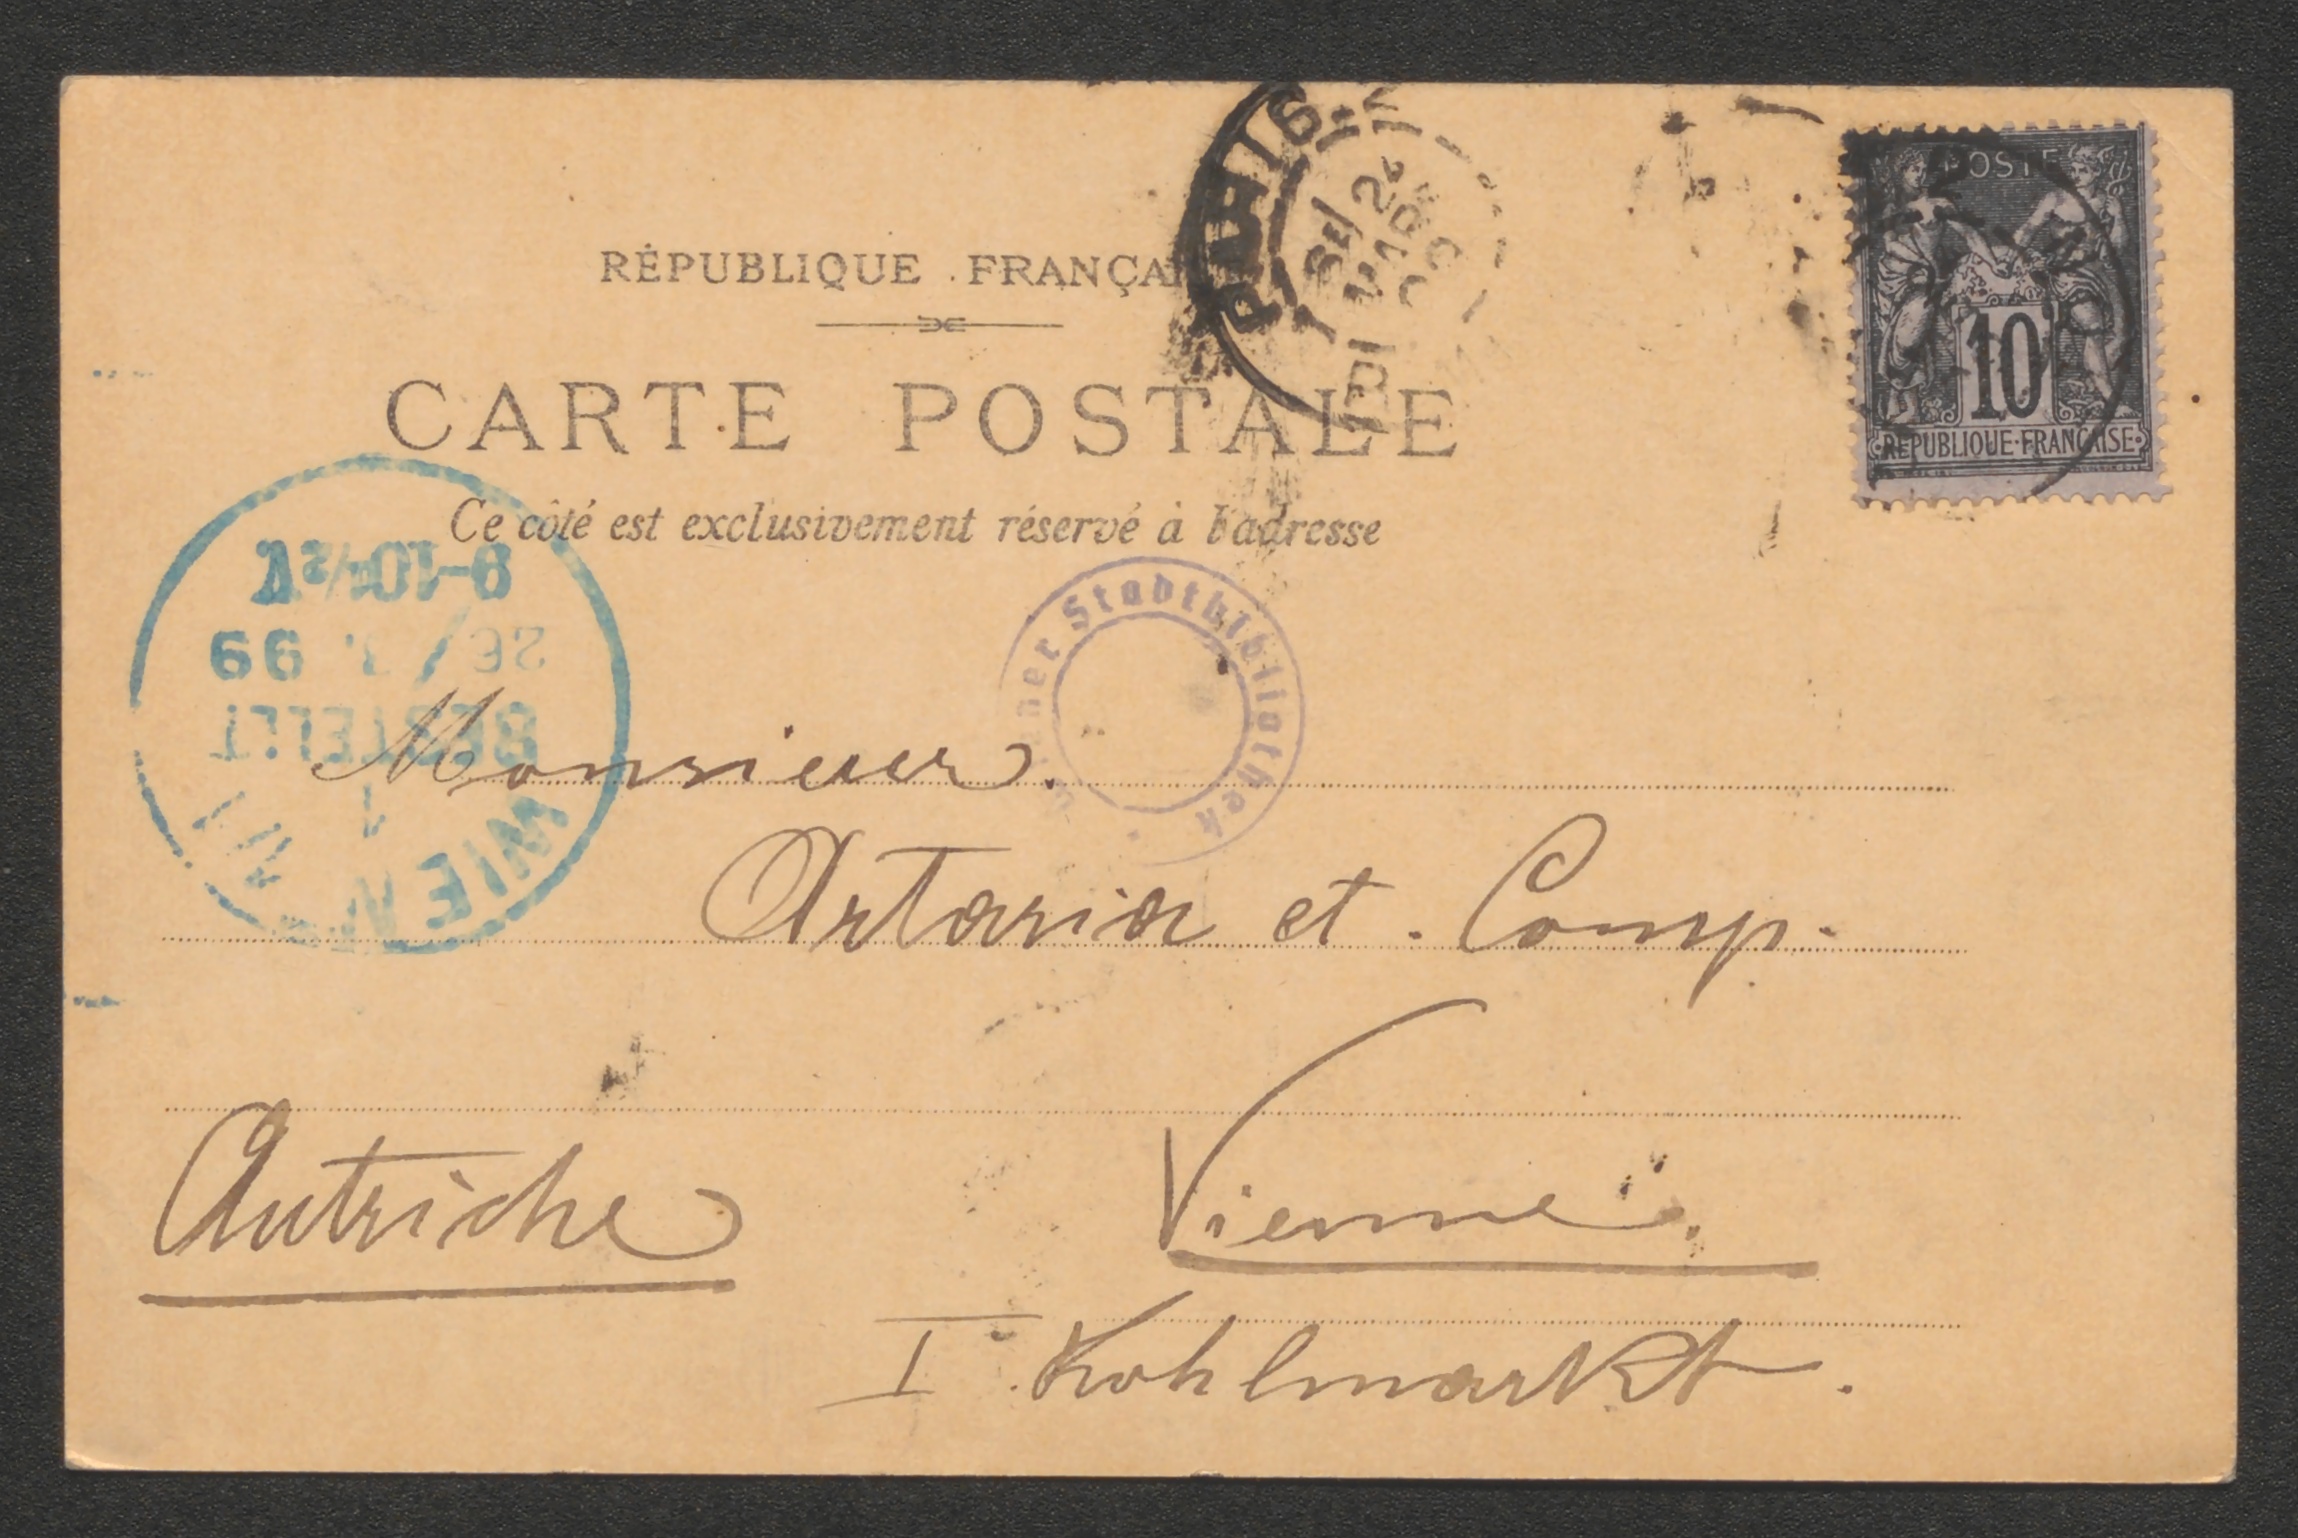 RÉPUBLIQUE FRANÇAI
CARTE POSTALE
Ce côté est exclusivement réservé à l'adresse
POSTE
10
RÉPUBLIQUE·FRANÇAISE
PARIS
9-10½ V
99
BESTELLT
1
WIEN
Stadtbibliothek
Monsieur
Artaria et Comp.
Autriche
Vienne.
I Kohlmarkt.